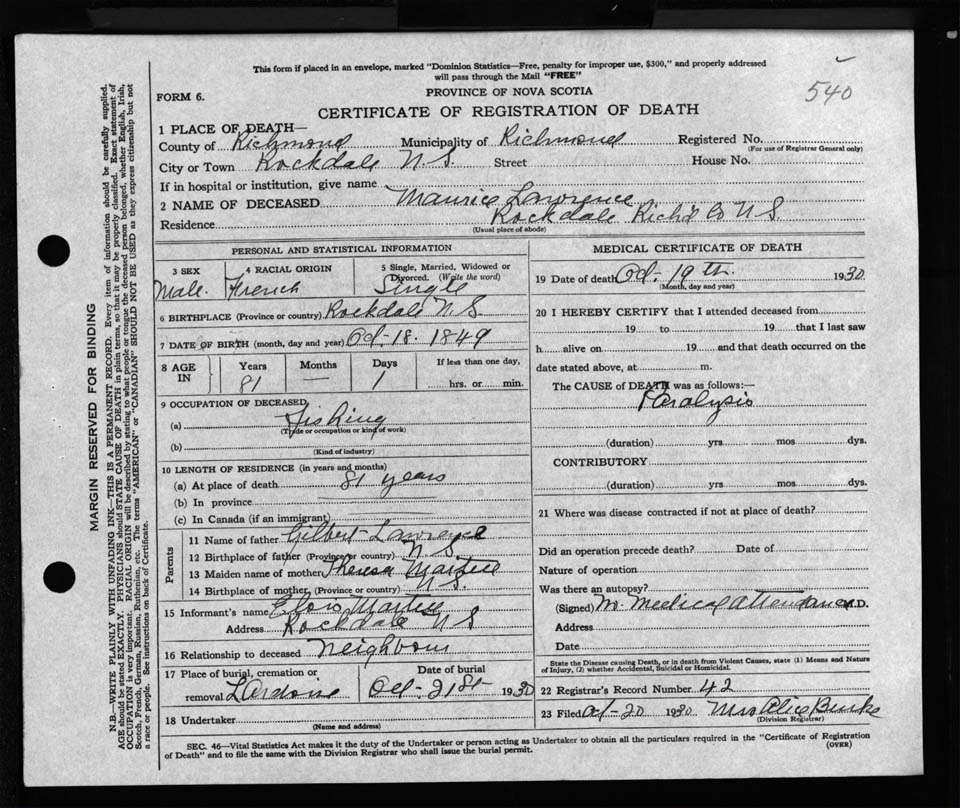 This form if placed in an envelope, marked "Dominion Statistics—Free, penalty for improper use, $300," and properly addressed
will pass through the Mail "FREE"
540
FORM 6.
PROVINCE OF NOVA SCOTIA
CERTIFICATE OF REGISTRATION OF DEATH
1 PLACE OF DEATH—
County of Richmond Municipality of Richmond Registered No.
(For use of Registrar General only)
City or Town Rockdale N.S. Street House No.
If in hospital or institution, give name
2 NAME OF DECEASED Maurice Lawrence
Residence Rockdale Rich'd Co N.S.
(Usual place of abode)
PERSONAL AND STATISTICAL INFORMATION
3 SEX
Male
4 RACIAL ORIGIN
French
5 Single, Married, Widowed or
Divorced. (Write the word)
Single
6 BIRTHPLACE (Province or country) Rockdale N.S.
7 DATE OF BIRTH (month, day and year) Oct-18-1849
8 AGE IN
Years
81
Months
—
Days
1
If less than one day,
hrs. or min.
9 OCCUPATION OF DECEASED
(a) Fishing
(Trade or occupation or kind of work)
(b)
(Kind of industry)
10 LENGTH OF RESIDENCE (in years and months)
(a) At place of death 81 years
(b) In province
(c) In Canada (if an immigrant)
Parents
11 Name of father Gilbert Lawrence
12 Birthplace of father (Province or country) N.S.
13 Maiden name of mother Theresa
14 Birthplace of mother (Province or country) N.S.
15 Informant's name
Address Rockdale N S
16 Relationship to deceased Neighbour
17 Place of burial, cremation or
removal L'Ardoise
Date of burial
Oct-21st 1930
18 Undertaker
(Name and address)
MEDICAL CERTIFICATE OF DEATH
19 Date of death Oct-19th 1930
(Month, day and year)
20 I HEREBY CERTIFY that I attended deceased from
19 to 19 that I last saw
h alive on 19 and that death occurred on the
date stated above, at m.
The CAUSE of DEATH was as follows:—
Paralysis
(duration) yrs. mos. dys.
CONTRIBUTORY
(duration) yrs. mos. dys.
21 Where was disease contracted if not at place of death?
Did an operation precede death? Date of
Nature of operation
Was there an autopsy?
(Signed) No Medical attendance M.D.
Address
Date
State the Disease causing Death, or in death from Violent Causes, state (1) Means and Nature
of Injury, (2) whether Accidental, Suicidal or Homicidal.
22 Registrar's Record Number 42
23 Filed Oct-20 1930 Mrs Alice Burke
(Division Registrar)
SEC. 46—Vital Statistics Act makes it the duty of the Undertaker or person acting as Undertaker to obtain all the particulars required in the "Certificate of Registration
of Death" and to file the same with the Division Registrar who shall issue the burial permit.
(OVER)
MARGIN RESERVED FOR BINDING
N.B.—WRITE PLAINLY WITH UNFADING INK—THIS IS A PERMANENT RECORD. Every item of information should be carefully supplied.
AGE should be stated EXACTLY. PHYSICIANS should STATE CAUSE OF DEATH in plain terms, so that it may be properly classified. Exact statement of
OCCUPATION is very important. RACIAL ORIGIN will be described by stating to what people or tongue the deceased person belonged, whether English, Irish,
Scotch, French, German, Russian, Ruthenian, etc. The terms "AMERICAN" or "CANADIAN" SHOULD NOT BE USED as they express citizenship but not
a race or people. See instructions on back of Certificate.